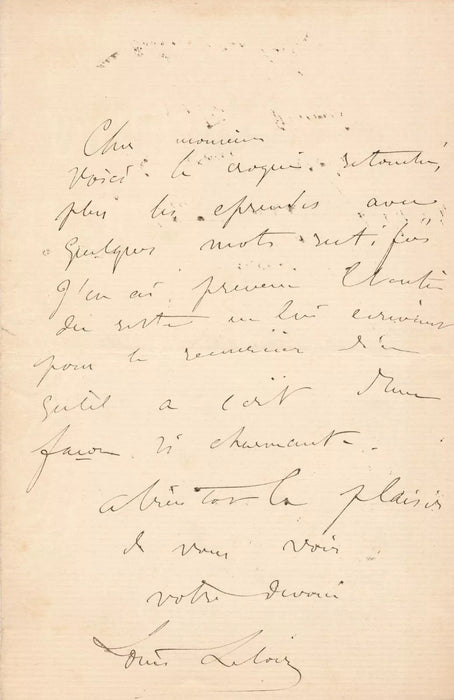 Cher monsieur
Voici le croquis retouché,
plus les épreuves avec
quelques mots rectifiés
J'en ai prévenu
du reste en lui écrivant
pour le remercier d'en
qu'il a écrit d'une
façon si charmante.
a bientot le plaisir
de vous voir
votre devoué
Louis Leloir